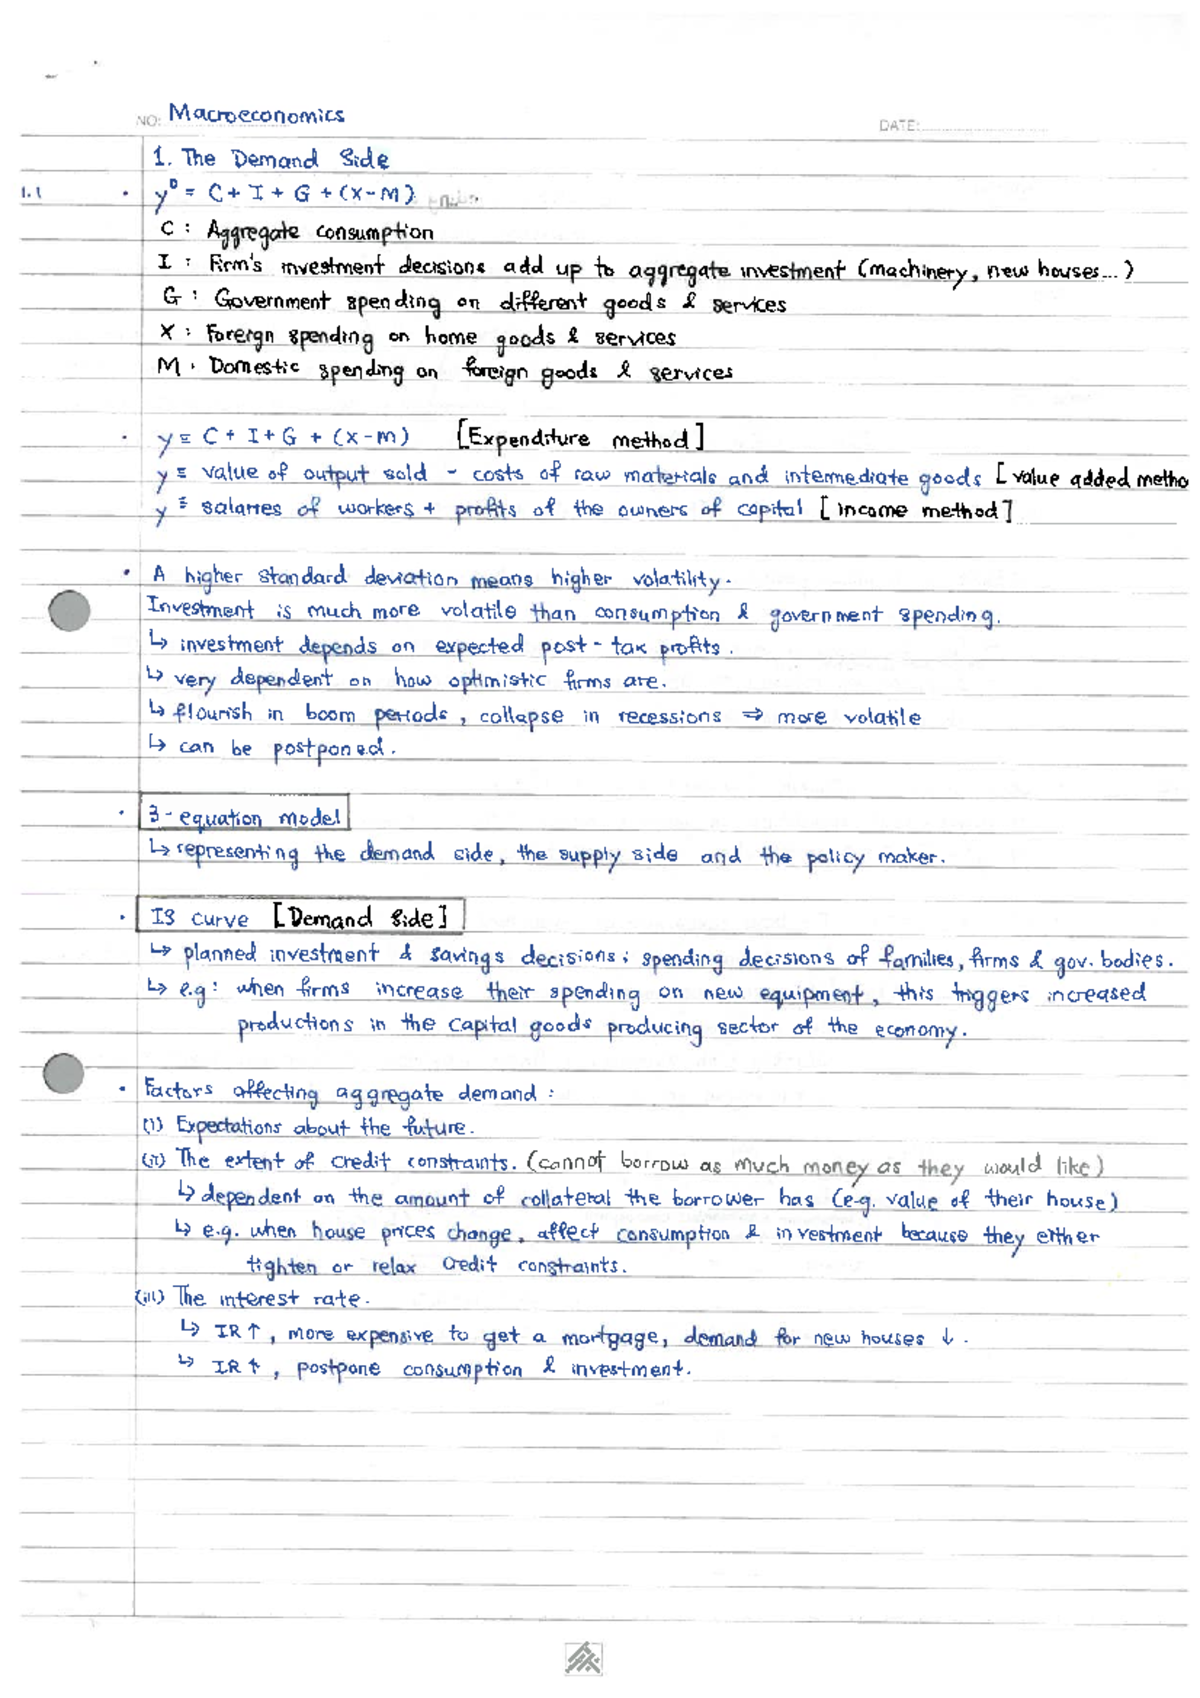 NO: Macroeconomics
DATE:
1. The Demand Side
1.1 · y^D = C + I + G + (X-M)
C : Aggregate consumption
I : Firm's investment decisions add up to aggregate investment (machinery, new houses...)
G : Government spending on different goods & services
X : Foreign spending on home goods & services
M : Domestic spending on foreign goods & services
· y ≡ C + I + G + (X-M) [Expenditure method]
y ≡ value of output sold - costs of raw materials and intermediate goods [value added metho
y ≡ salaries of workers + profits of the owners of capital [income method]
• A higher standard deviation means higher volatility.
Investment is much more volatile than consumption & government spending.
↳ investment depends on expected post-tax profits.
↳ very dependent on how optimistic firms are.
↳ flourish in boom periods, collapse in recessions ⇒ more volatile
↳ can be postponed.
· 3-equation model
↳ representing the demand side, the supply side and the policy maker.
· IS curve [Demand Side]
↳ planned investment & savings decisions; spending decisions of families, firms & gov. bodies.
↳ e.g: when firms increase their spending on new equipment, this triggers increased
productions in the capital goods producing sector of the economy.
• Factors affecting aggregate demand :
(i) Expectations about the future.
(ii) The extent of credit constraints. (cannot borrow as much money as they would like)
↳ dependent on the amount of collateral the borrower has (e.g. value of their house)
↳ e.g. when house prices change, affect consumption & investment because they either
tighten or relax credit constraints.
(iii) The interest rate.
↳ IR↑, more expensive to get a mortgage, demand for new houses ↓.
↳ IR↑, postpone consumption & investment.